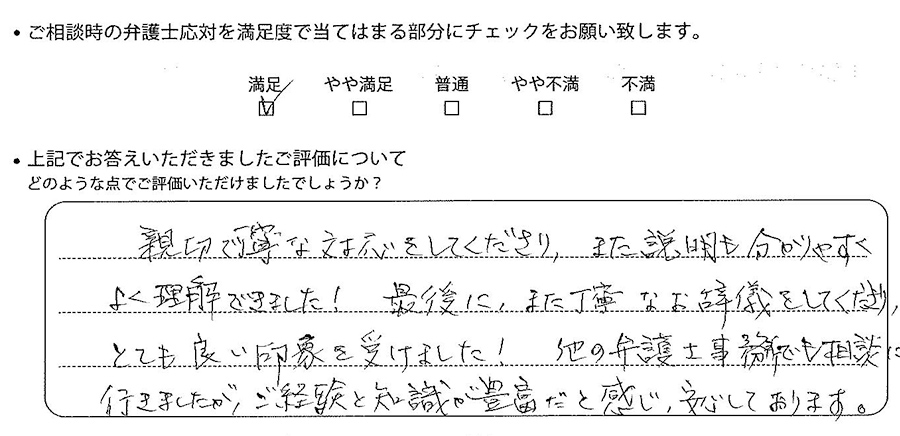 ・ご相談時の弁護士応対を満足度で当てはまる部分にチェックをお願い致します。
満足 やや満足 普通 やや不満 不満
☑ □ □ □ □
・上記でお答えいただきましたご評価について
どのような点でご評価いただけましたでしょうか？
親切で丁寧な対応をしてくださり、また説明も分かりやすく
よく理解できました！ 最後に、また丁寧なお辞儀をしてくださり、
とても良い印象を受けました！ 他の弁護士事務所でも相談に
行きましたが、ご経験と知識が豊富だと感じ、安心しております。